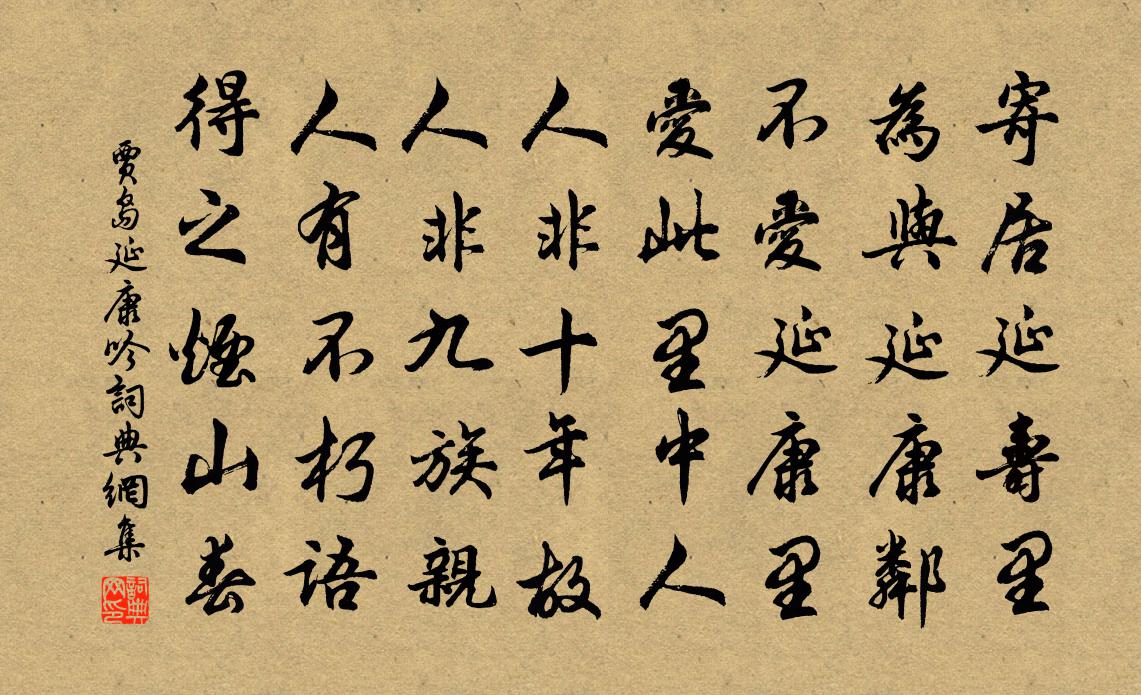 寄居延壽里
為與延康鄰
不愛延康里
愛此里中人
人非十年故
人非九族親
人有不朽語
得之煙山春
賈島延康吟詞典網集
詞典網印